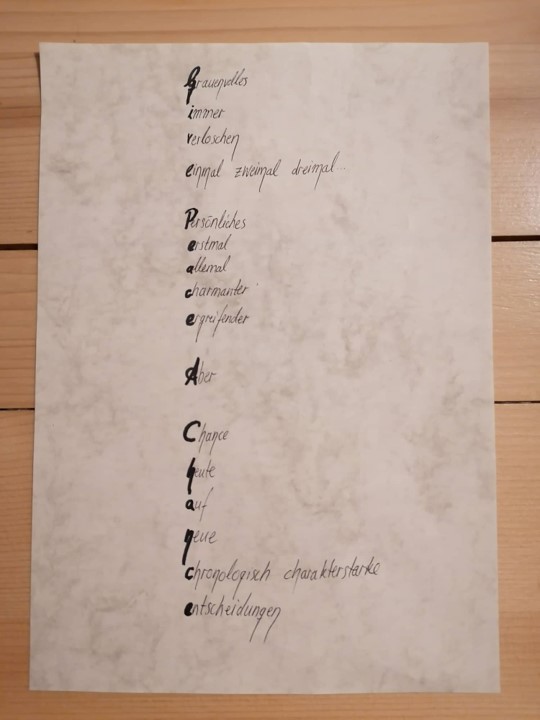 Grauenvolles
immer
verloschen
einmal zweimal dreimal...
Persönliches
erstmal
allemal
charmanter
ergreifender
Aber
Chance
heute
auf
neue
chronologisch charakterstarke
entscheidungen